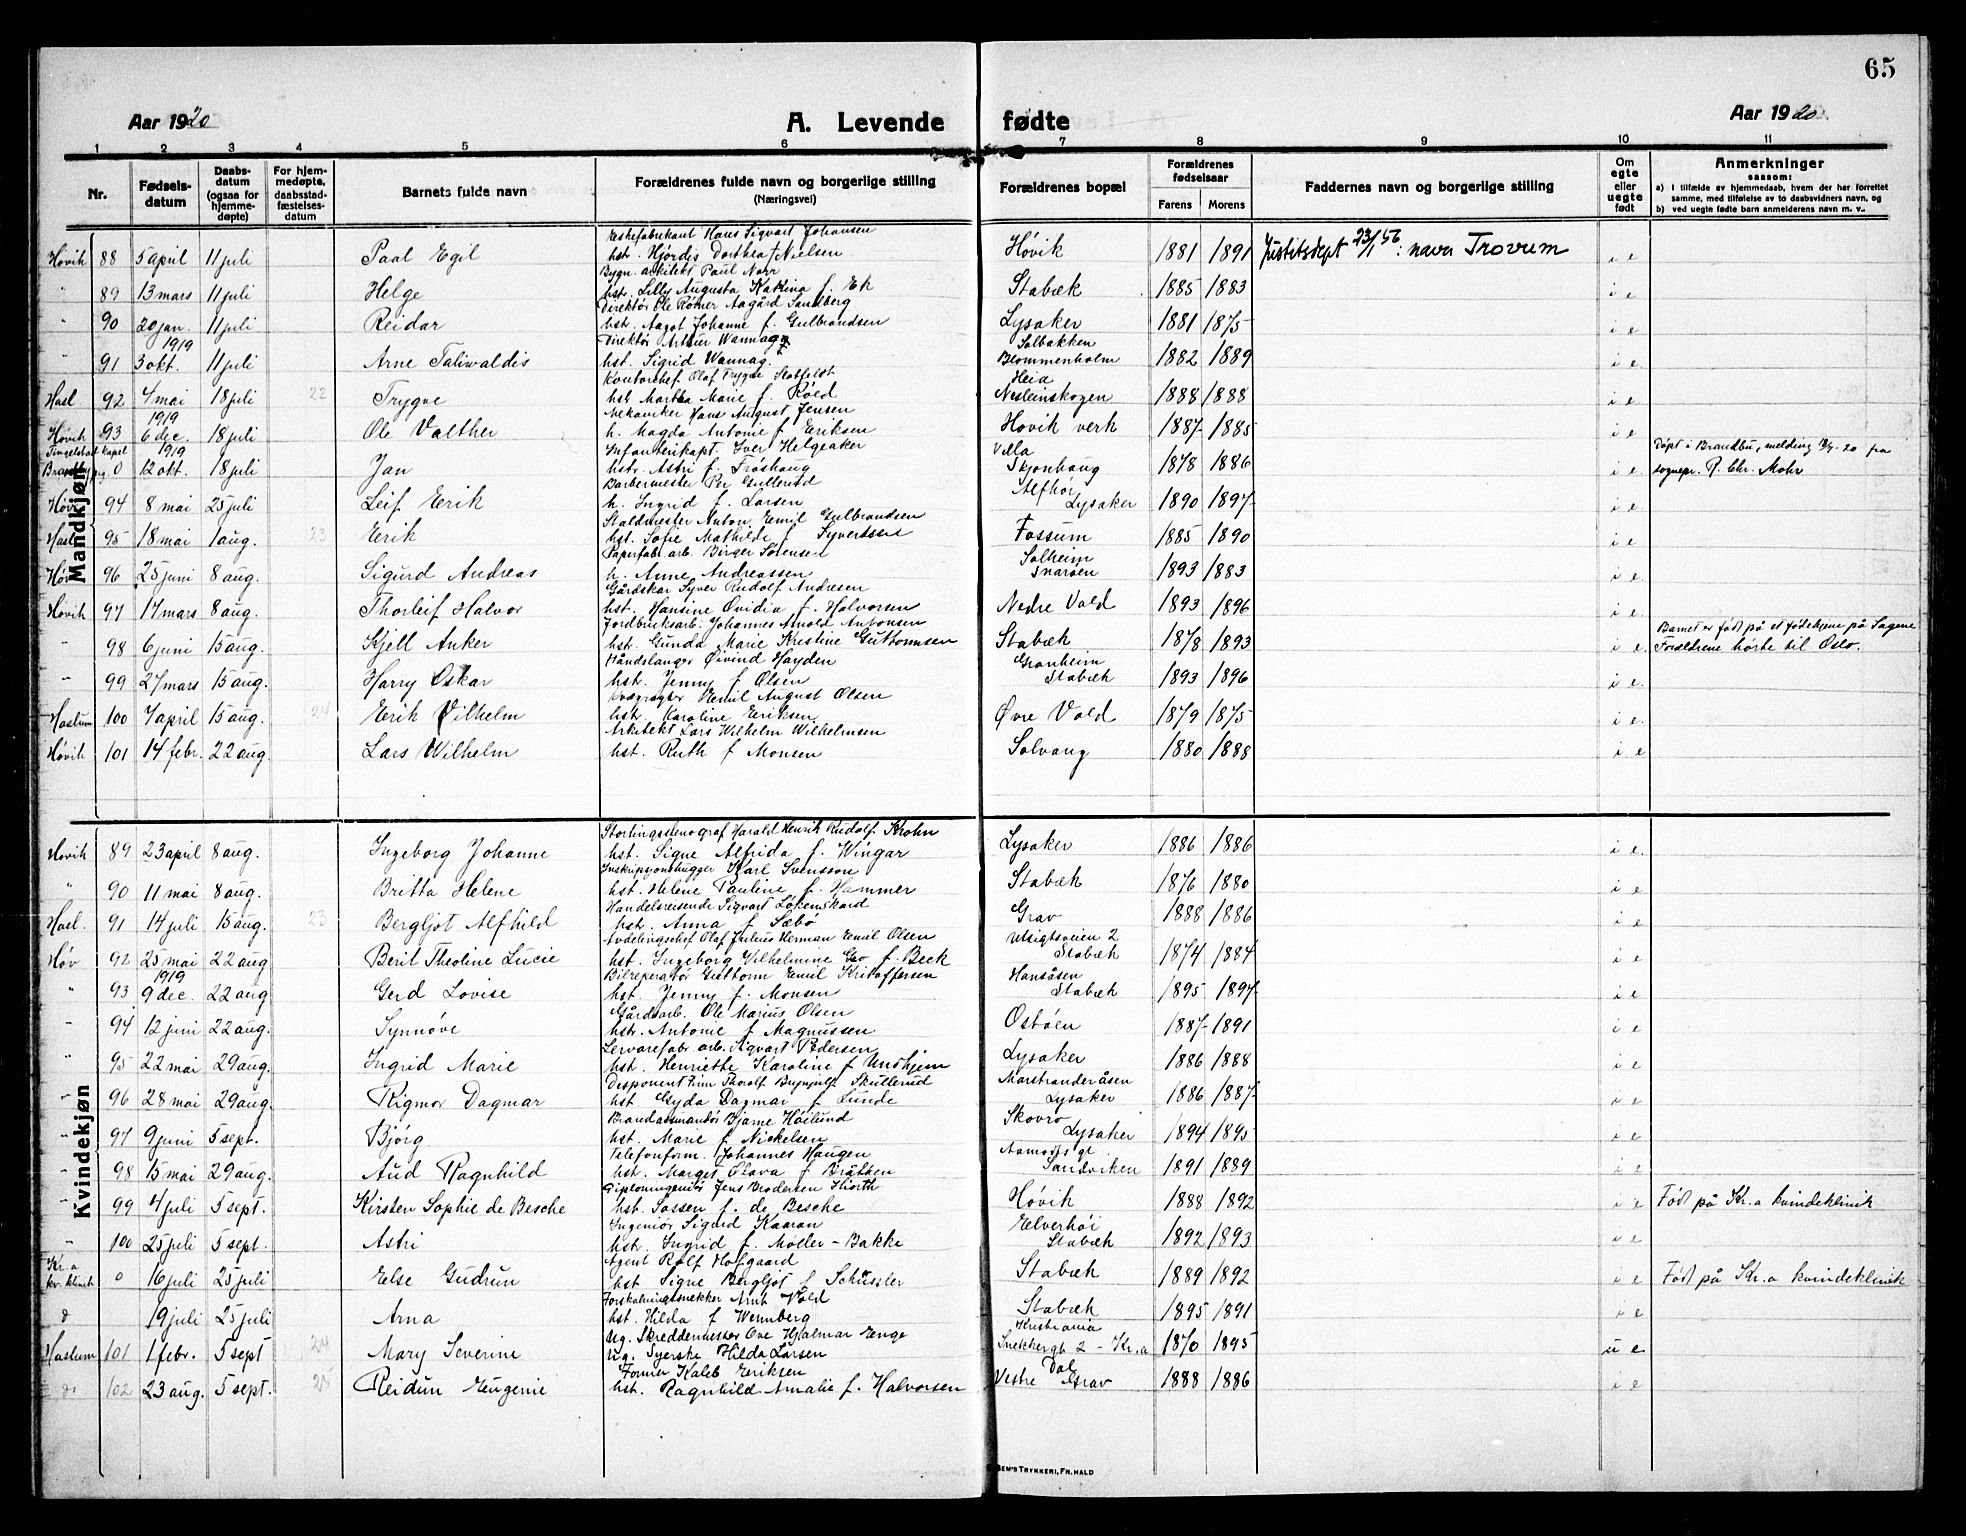 65
Aar 1920
A. Levende fødte
Aar 1920
1 2 3 4 5 6 7 8 9 10 11
Nr. Fødsels-datum Daabs-datum (ogsaa for hjemme-døpte) For hjem-medøpte, daabsstad-fæstelses-datum Barnets fulde navn Forældrenes fulde navn og borgerlige stilling (Næringsvei) Forældrenes bopæl Forældrenes fødselsaar Farens Morens Faddernes navn og borgerlige stilling Om egte eller uegte født Anmerkninger saasom:
a) I tilfælde av hjemmedaab, hvem der har forrettet samme, med tilføielse av to daabsvidners navn, og
b) ved uegte fødte barn anmelderens navn m. v.
Mandkjøn
Eskefabrikant Hans Sigvart Johansen
Høvik 88 5 april 11 juli Paal Egil hst. Hjørdis Dorthea Nielsen Høvik 1881 1891 Justitsdept 23/1 56: navn Trovum i e
Bygn. arkitekt Paul Narr
" 89 13 mars 11 juli Helge hst. Lilly Augusta Katrina f. Ek Stabæk 1885 1883 i e
Direktør Ole Rømer Aagård Sandberg
" 90 20 jan. 11 juli Reidar hst. Aagot Johanne f. Gulbrandsen Lysaker 1881 1875 i e
1919 Direktør Arthur Wannag Solbakken
" 91 3 okt. 11 juli Arne Taliwaldis hst. Sigrid Wannag Blommenholm 1882 1889 i e
Kontorchef Olaf Trygve Slotfeldt Heia
Hasl. 92 4 mai 18 juli 22 Trygve hst. Martha Marie f. Røed Nesleinskogen 1888 1888 i e
1919 Mekaniker Hans August Jensen
Høvik 93 6 dec. 18 juli Ole Valther h. Magda Antonie f. Eriksen Høvik verk 1887 1885 i e
Tingelstad kapel 1919 Infanterikapt. Iver Helgeaker Villa Døpt i Brandbu, melding 20 fra
0 12 okt. 18 juli Jan hstr. Astri f. Frøshaug Skjonhaug 1878 1886 i e sognepr. R. Chr. Mohr
Barbermester Per Gullerud Alfhør
Høvi 94 8 mai 25 juli Leif Erik h. Ingrid f. Larsen Lysaker 1890 1897 i e
Staldmester Anton Emil Gulbrandsen
Hasl 95 18 mai 1 aug. 23 Erik hst. Sofie Mathilde f. Syvertsen Fossum 1885 1890 i e
Papirfabr.arb. Birger Sørensen Solheim
Høv 96 25 juni 8 aug. Sigurd Andreas h. Anne Andreassen Snarøen 1893 1883 i e
Gårdskar Syver Rudolf Andresen
Høvik 97 17 mars 8 aug. Thorleif Halvor hst. Hansine Ovidia f. Halvorsen Nedre Vold 1893 1896 i e
Jordbruksarb. Johannes Arnold Antonsen Barnet er født på et fødehjem på Sagene
" 98 6 juni 15 aug. Kjell Anker hst. Gunda Marie Kristine Guttormsen Stabæk 1878 1893 i e Forældrene hørte til Oslo.
Håndslanger Øivind Hayden Granheim
" 99 27 mars 15 aug. Harry Oskar hst. Jenny f. Olsen Stabæk 1893 1896 i e
Emil August Olsen
Haslum 100 7 april 15 aug. 24 Erik Vilhelm hst. Karoline Eriksen Øvre Vold 1879 1875 i e
Arkitekt Lars Wilhelm Wilhelmsen
Høvik 101 14 febr. 22 aug. Lars Wilhelm hst. Ruth f. Monsen Solvang 1880 1888 i e
Kvindekjøn
Stortingsstenograf Harald Henrik Rudolf Krohn
Høvik 89 23 april 8 aug. Ingeborg Johanne hst. Signe Alfrida f. Wingar Lysaker 1886 1886 i e
Inskripsjonshugger Karl Svensson
" 90 11 mai 8 aug. Britta Helene hst. Helene Pauline f. Hammer Stabæk 1876 1880 i e
Handelsreisende Sigvart Løkenskard
Hasl. 91 14 juli 15 aug. 23 Bergljot Alfhild hst. Anna f. Sæbø Grav 1888 1886 i e
Avdelingschef Olaf Julius Herman Emil Olsen Utsigtsveien 2
Høv 92 25 mai 22 aug Berit Theoline Lucie hst. Ingeborg Vilhelmine f. Beck Stabæk 1874 1884 i e
1919 Bilreperatør Guttorm Emil Kristoffersen Hansåsen
" 93 9 dec. 22 aug Gerd Lovise hst. Jenny f. Monsen Stabæk 1895 1897 i e
Gårdsarb. Ole Marius Olsen
" 94 12 juni 22 aug. Synnøve hst. Antonie f. Magnussen Ostøen 1887 1891 i e
Lervarefabr. arb. Sigvart Pedersen
" 95 22 mai 29 aug. Ingrid Marie hst. Henriette Karoline f. Undhjem Lysaker 1886 1888 i e
Disponent Finn Thorolf Brynjulf Skullerud Marstranderåsen
" 96 28 mai 29 aug. Rigmor Dagmar hst. Gyda Dagmar f. Lunde Lysaker 1886 1887 i e
Bjarne Høilund Skovro
" 97 9 juni 5 sept. Bjørg hst. Marie f. Nickelsen Lysaker 1894 1895 i e
Telefonform. Johannes Haugen
" 98 15 mai 29 aug. Aud Ragnhild hst. Margit Olava f. Bråthen Sandviken 1891 1889 i e
Diplomingeniør Jens Brodersen Hiorth
" 99 4 juli 5 sept. Kirsten Sophie de Besche hst. Sossen f. de Besche Høvik 1888 1892 i e Født på Kr.a kvindeklinik
Ingeniør Sigurd Kaaran Elverhøi
" 100 25 juli 5 sept. Astri hst. Ingrid f. Møller-Bakke Stabæk 1892 1893 i e
Kr.a Agent Rolf Hofgaard
kv.klinik 0 16 juli 25 juli Else Gudrun hst. Signe Bergljot f. Schüssler Stabæk 1889 1892 i e Født på Kr.a kvindeklinik
Forskalningssnekker Arnt Vold
d 19 juli 25 juli Arna hst. Hilda f. Wennberg Stabæk 1895 1891 i e
Ug. Skreddermester Ove Hjalmar Enge Kristiania
Haslum 101 1 febr. 5 sept 24 Mary Severine Ug. Syerske Hilda Larsen Snekkergt 2 - Kr.a 1870 1895 u e
Former Kaleb Eriksen Dal
do 102 23 aug. 5 sept. 25 Reidun Eugenie hst. Ragnhild Amalie f. Halvorsen Vestre Grav 1888 1886 i e
SEM'S TRYKKERI, FR. HALD